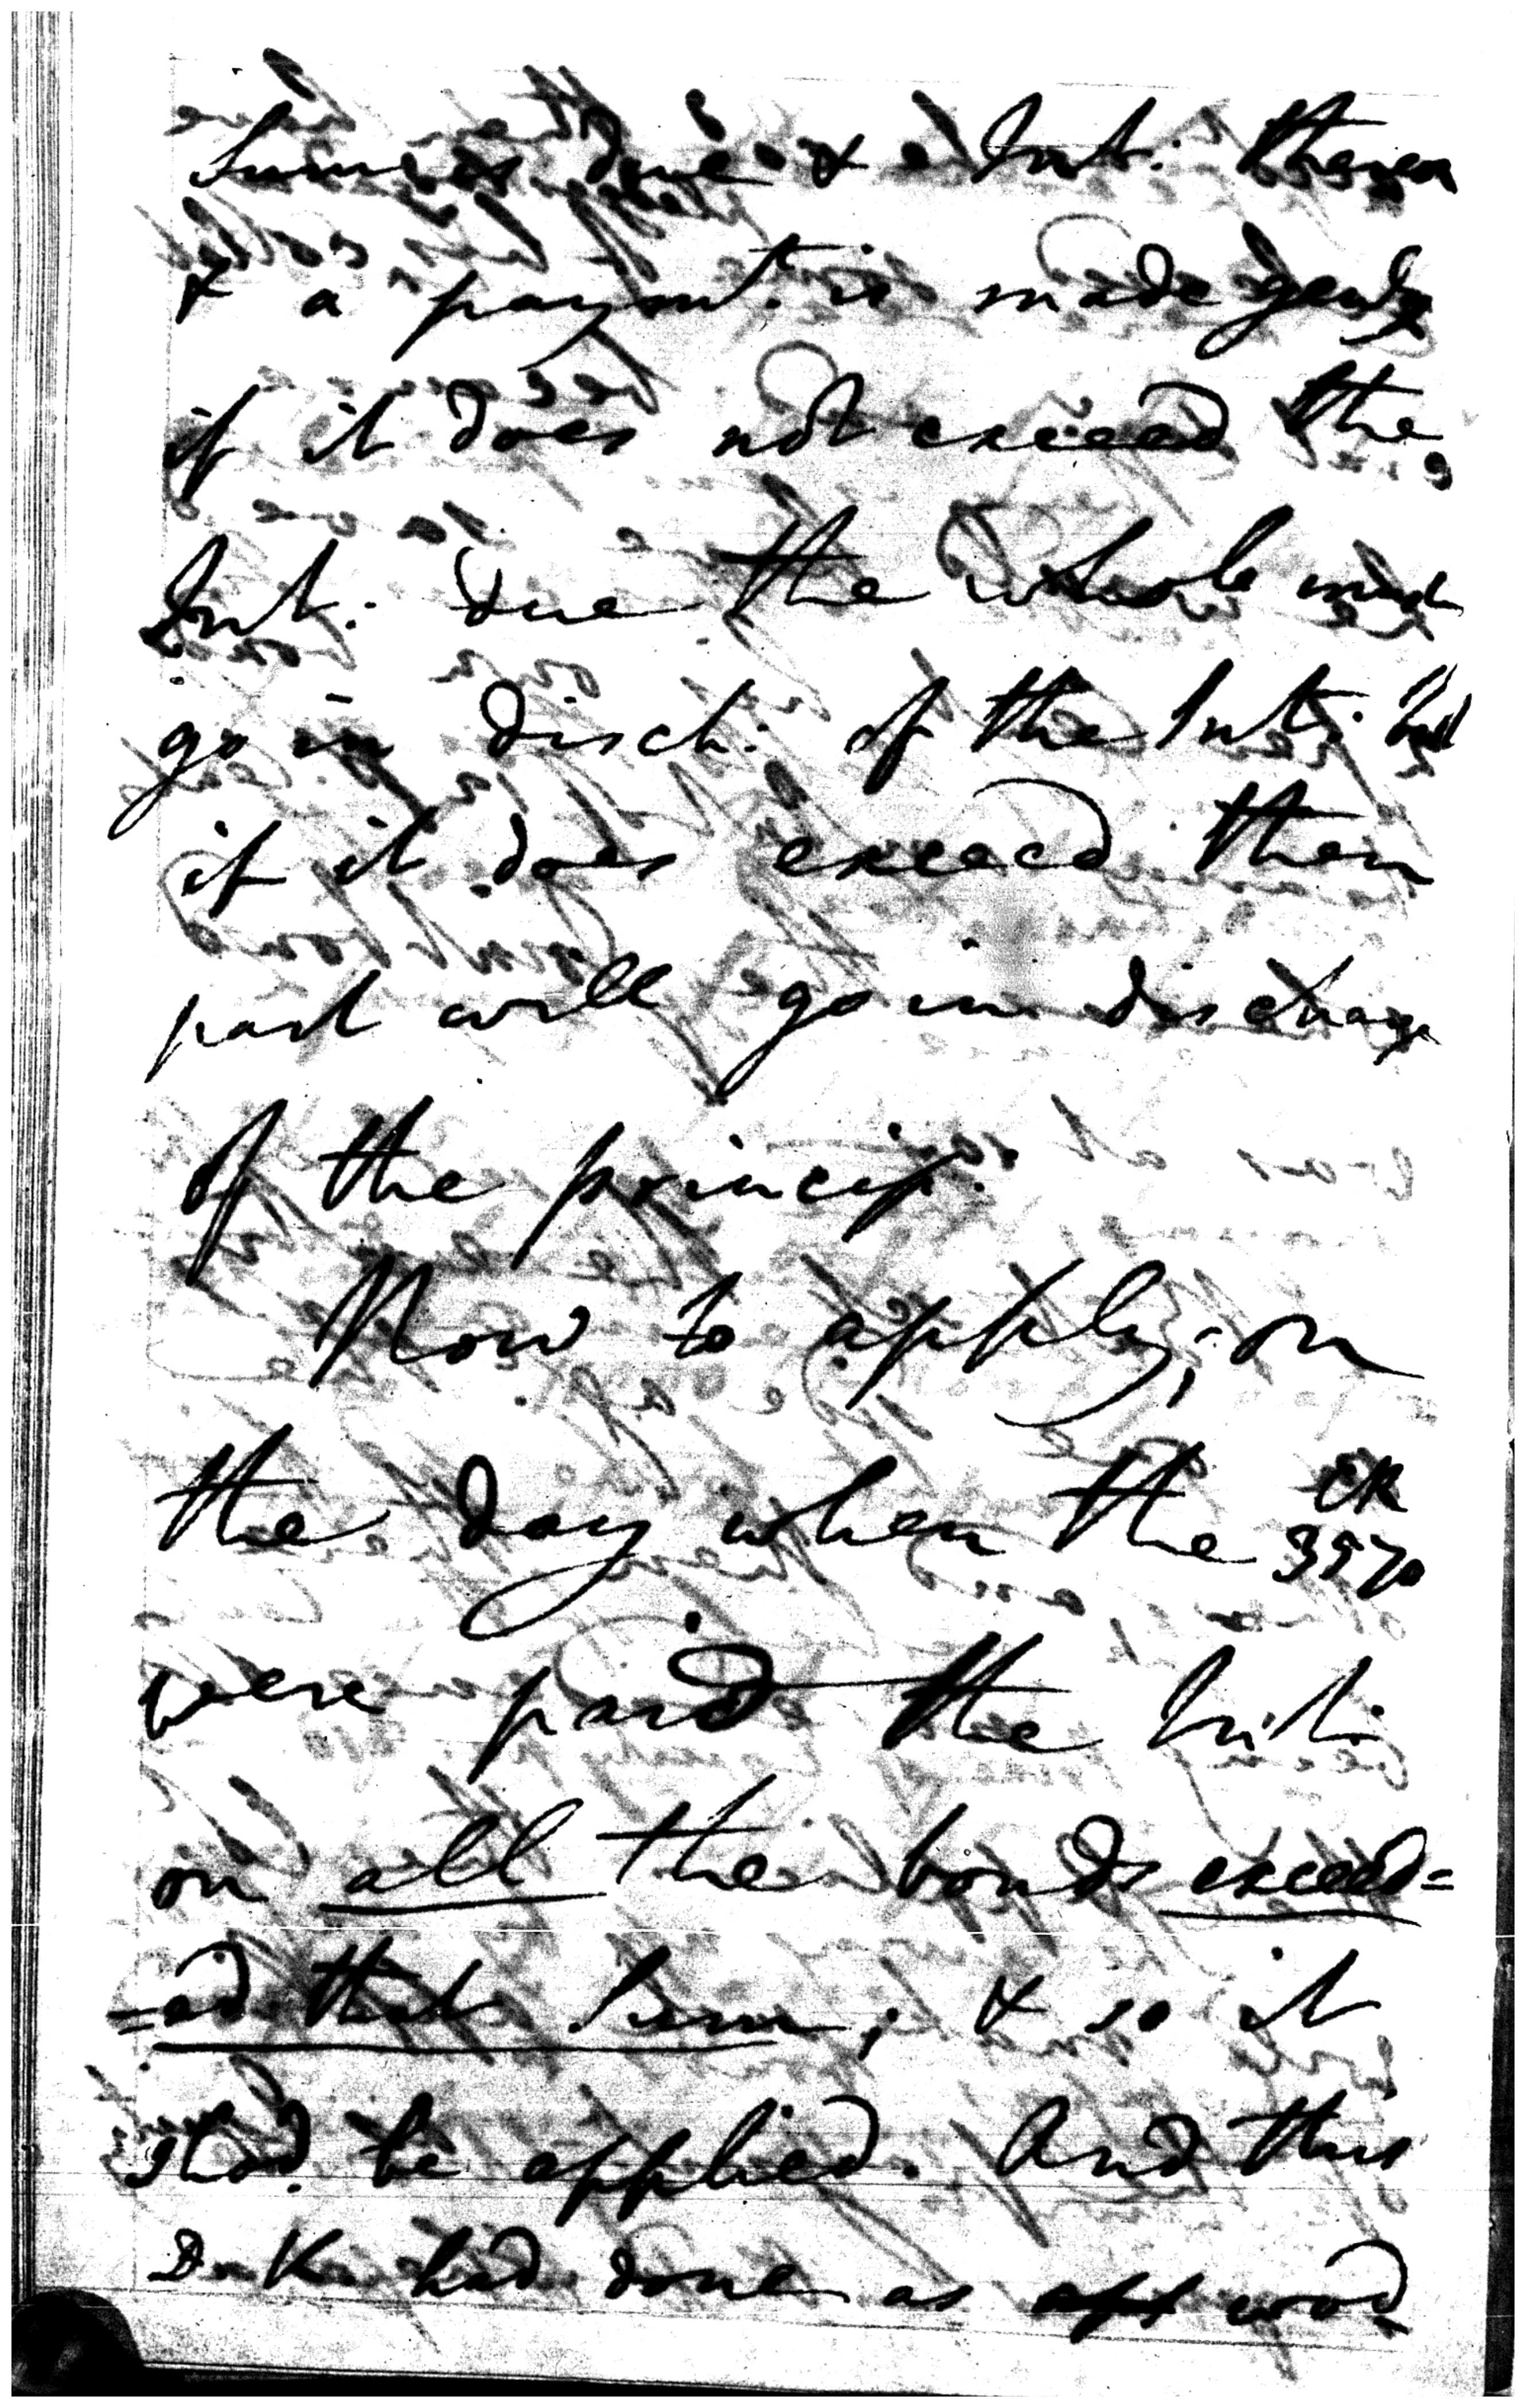 Sum is due & Int. thereon
& a paymt. is made genly
if it does not exceed the
Int: due the whole must
go in disch: of the Int: but
if it does exceed then
part will go in discharge
of the princip:
Now to apply; on
the day when the CR
3970
were paid the Int:
on all the bonds exceed=
=ed that Sum; & so it
shod. be applied. And this
Dr K. had done as wod